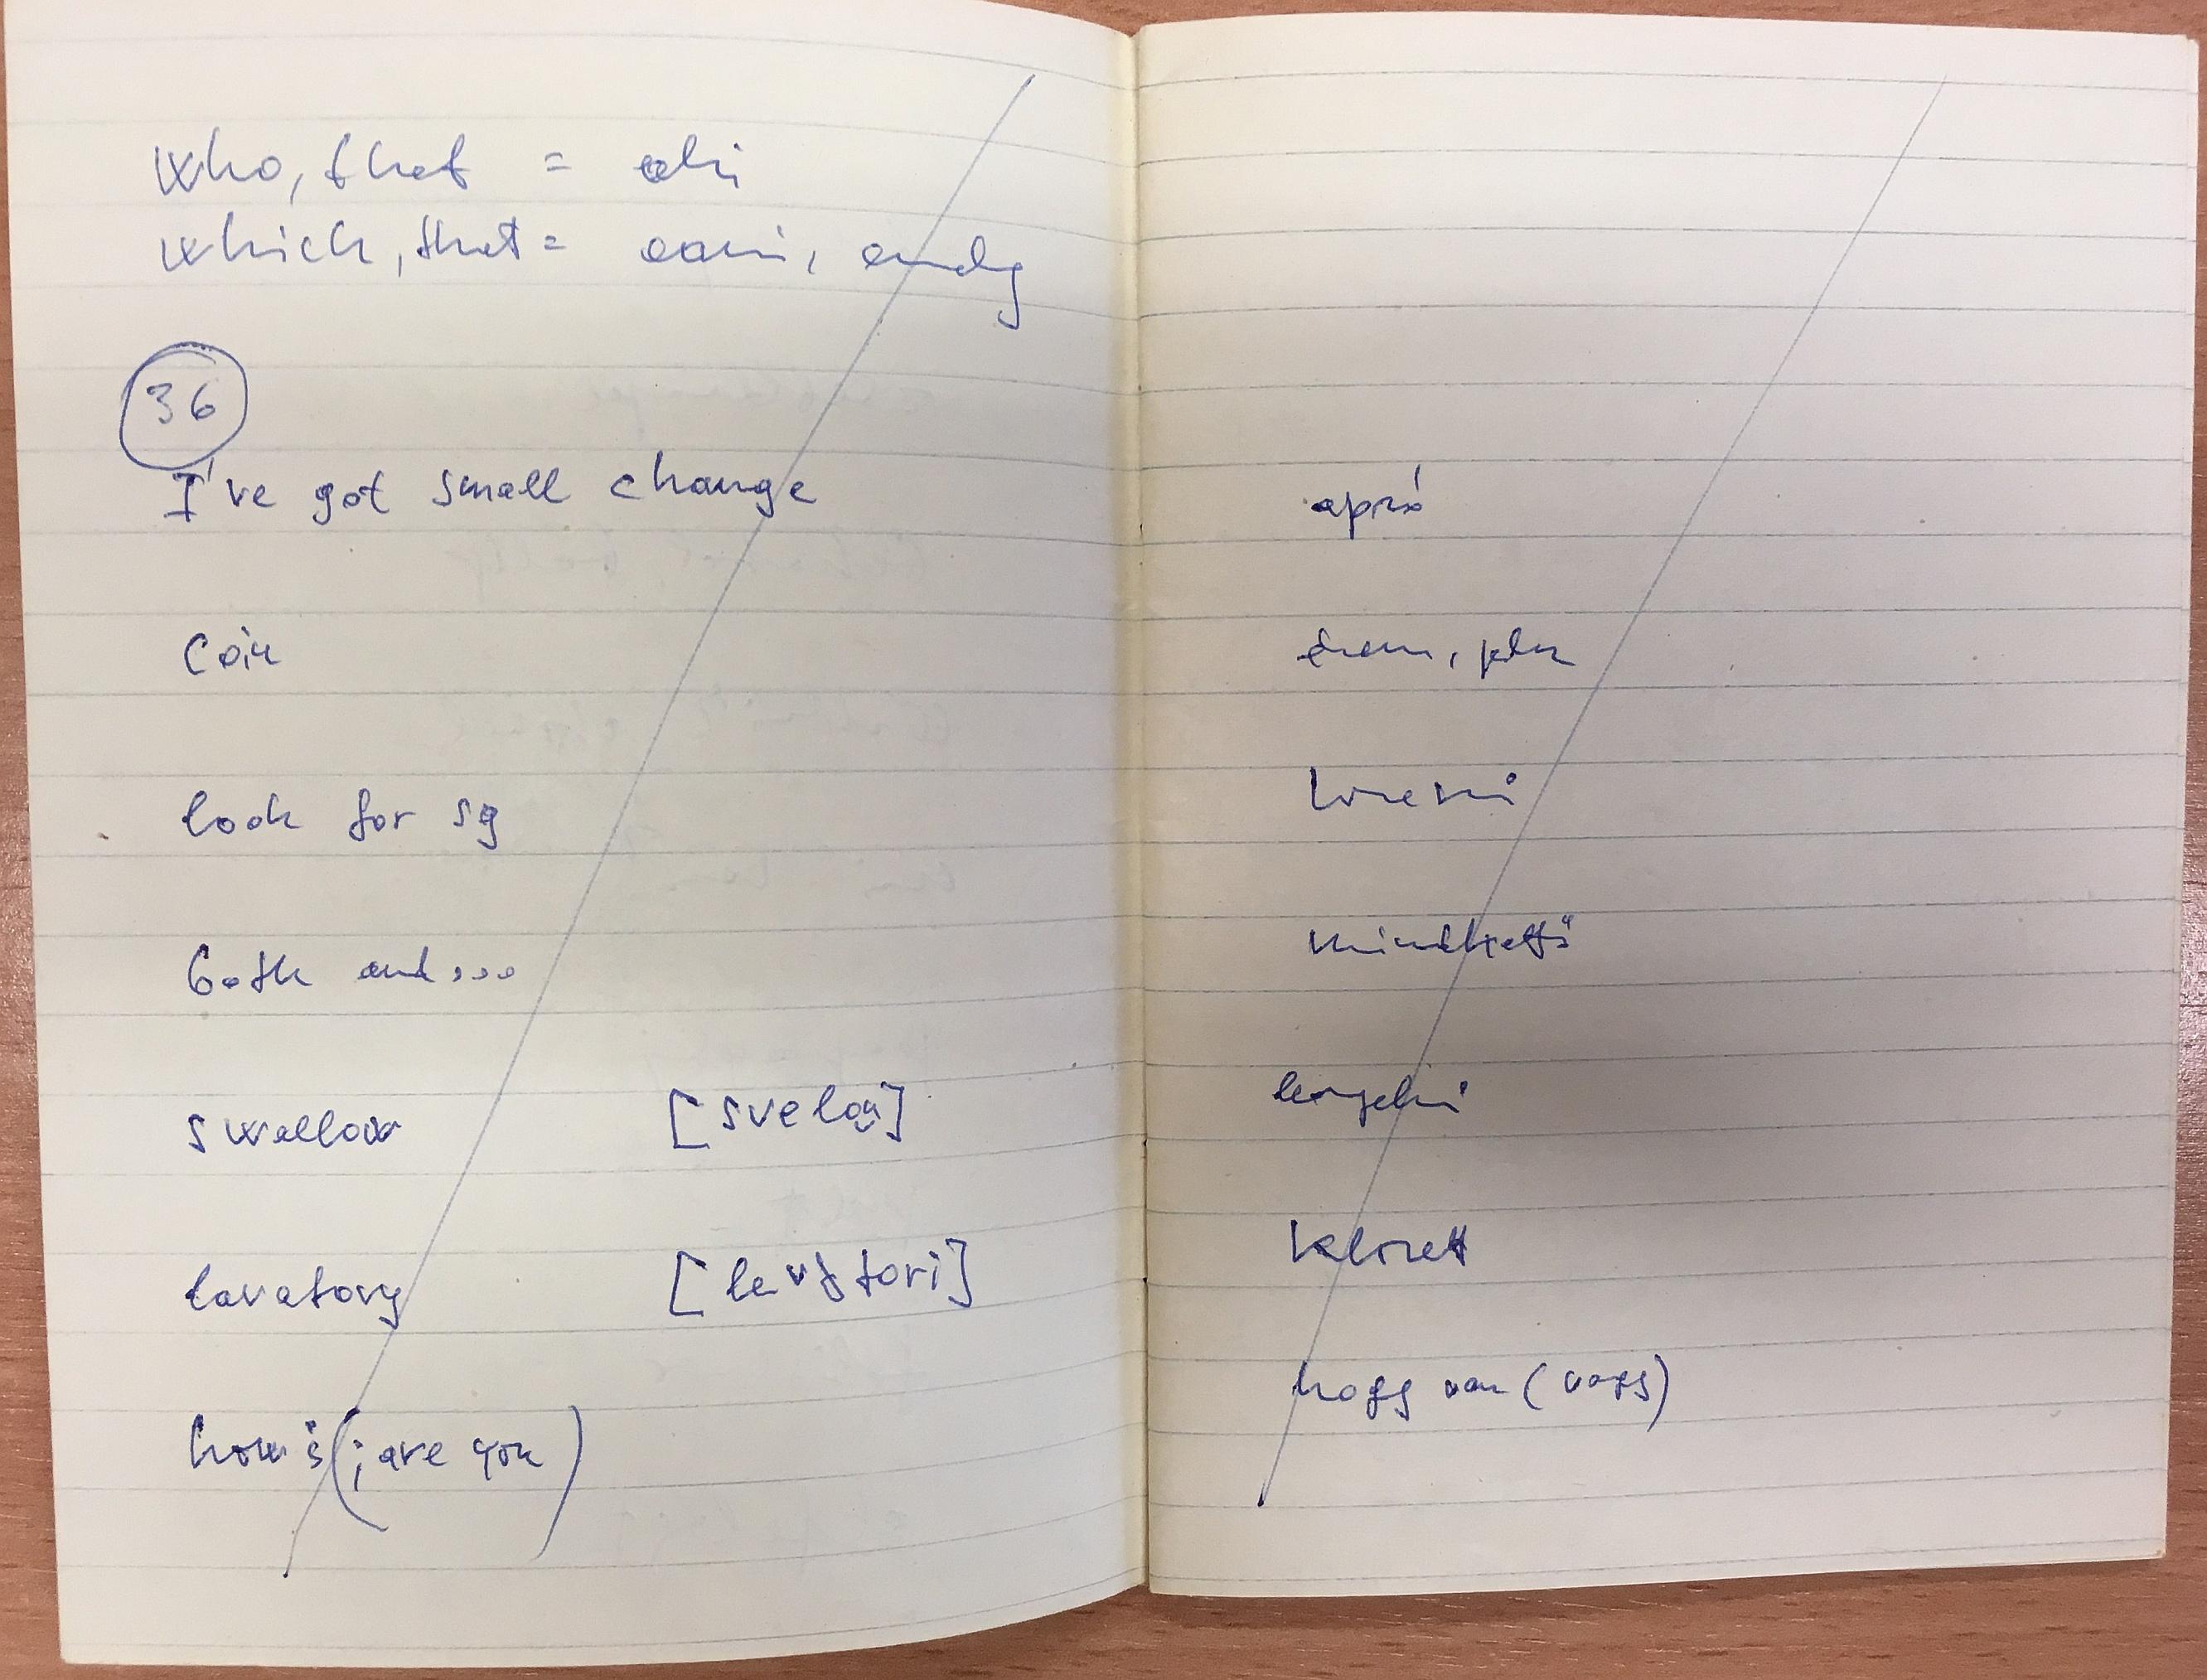 who, that = aki
which, that = ami, amely
36
I've got small change apró
coin érem, pénz
look for sg keresni
both and... mindkettő
swallow [svelou] lenyelni
lavatory [levətori] klozett
how's (; are you) hogy van (vagy)